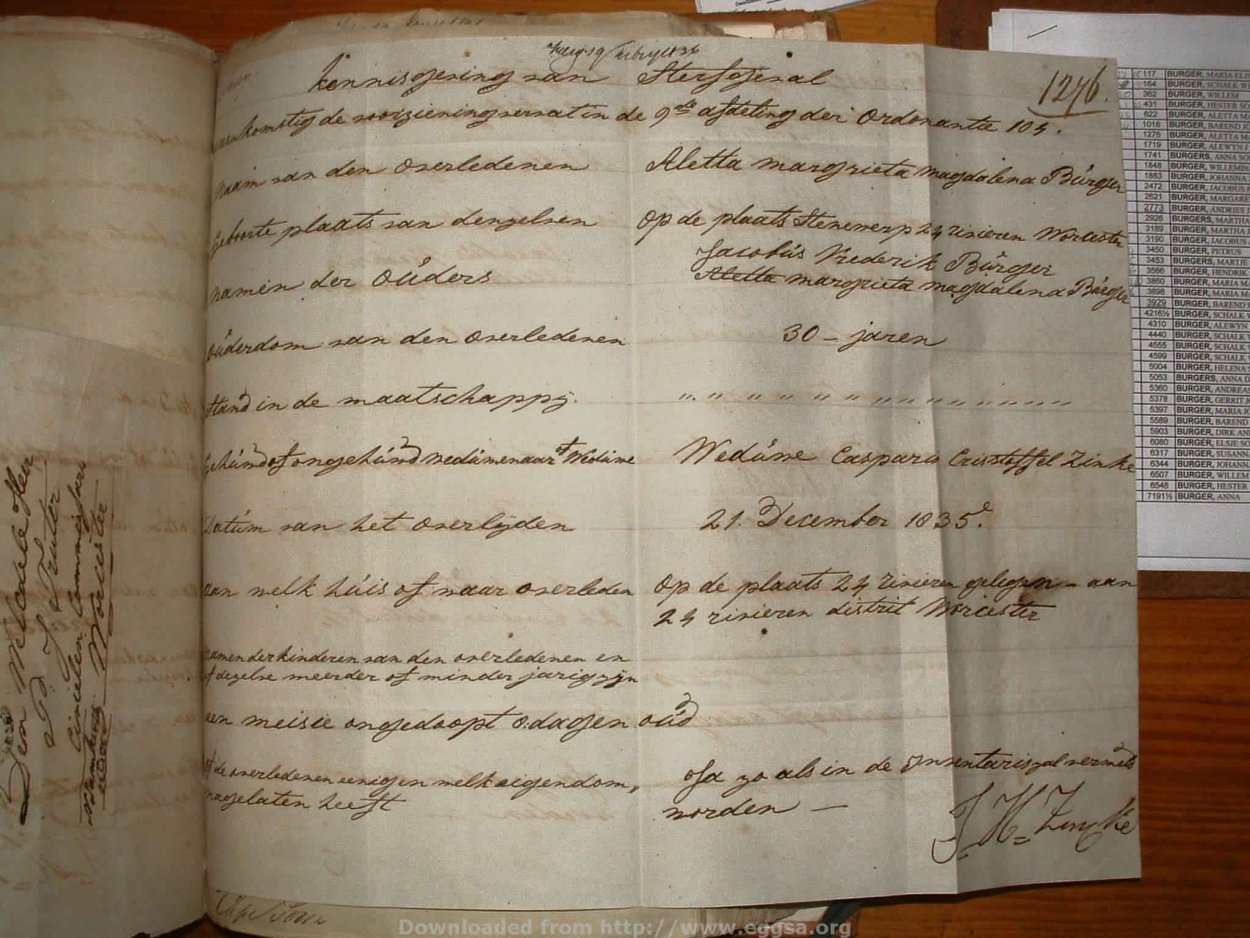 kennisgeving van Sterfgeval
1276.
eenkomstig de voorziening vervat in de 9de afdeling der Ordonantie 104.
Naam van den Overledenen Aletta margrieta magdalena Bürger
Geboorte plaats van denzelven Op de plaats Stenewerp 24 rivieren Worcester
Jacobús Frederik Bürger
namen der Oúders Aletta margrieta magdalena Bürger
Oúderdom van den Overledenen 30 – jaren
Stand in de maatschappij. " " " " " " " " " " " " "
Gehúwd of ongehúwd Wedúwenaar of Wedúwe Wedúwe Casparis Cristoffel Zinke
Datúm van het Overlijden 21 December 1835.
aan welk húis of waar overleden Op de plaats 24 rivieren gelegen aan
24 rivieren distrit Worcester
namen der kinderen van den overledenen en
of dezelve meerder of minder jarig zyn
een meisie ongedoopt dagen oúd
of de overledenen eenigen welk eigendom, Ja zo als in de Inventaris zal vermeld
nagelaten heeft worden —
J H Zin ke
Den Weledele Heer
P J Truter
Civielen Commissaris
Worcester
117 BURGER, MARIA EL
164 BURGER, SCHALK W
362 BURGER, WILLEM
431 BURGER, HESTER SO
622 BURGER, ALETTA M
1018 BURGER, BAREND J
1276 BURGER, ALETTA M
1719 BURGER, ALEWYN J
1741 BURGERS, ANNA SO
1848 BURGER, WILLEMIN
1883 BURGER, JOHANNA
2472 BURGER, JACOBUS
2621 BURGER, MARGARE
2773 BURGER, ANDRIES
2926 BURGERS, MARTHA
3189 BURGER, MARTHA
3190 BURGER, JACOBUS
3450 BURGER, PETRUS
3453 BURGERS, MARTJE
3566 BURGER, HENDRIK
3660 BURGER, MARIA M
3698 BURGER, MARIA M
3929 BURGER, BAREND
4216½ BURGER, SCHALK
4310 BURGER, ALEWYN
4440 BURGER, SCHALK
4555 BURGER, SCHALK
4599 BURGER, SCHALK
5004 BURGER, HELENA
5053 BURGERS, ANNA D
5360 BURGER, ANDREA
5378 BURGER, GERRIT
5397 BURGER, MARIA J
5589 BURGER, BAREND
5903 BURGER, DIRK AN
6080 BURGER, ELSIE SO
6317 BURGER, SUSANN
6344 BURGER, JOHANN
6507 BURGER, WILLEM
6548 BURGER, HESTER
7191½ BURGER, ANNA
Downloaded from http://www.eggsa.org